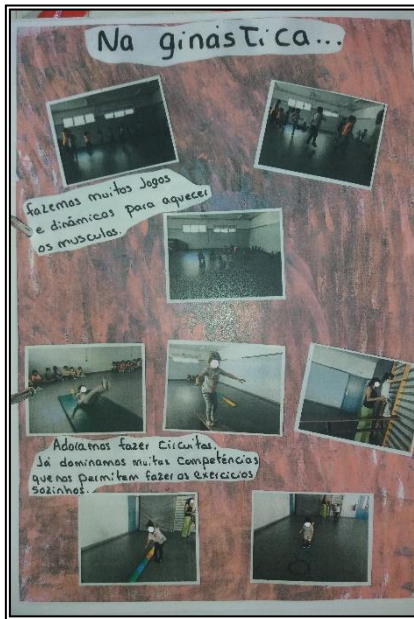 Na ginástica...
fazemos muitos Jogos
e dinâmicas para aquecer
os musculos.
Adoramos fazer Circuitos.
Já dominamos muitas Competências
que nos permitem fazer os exercicios
Sozinhos.